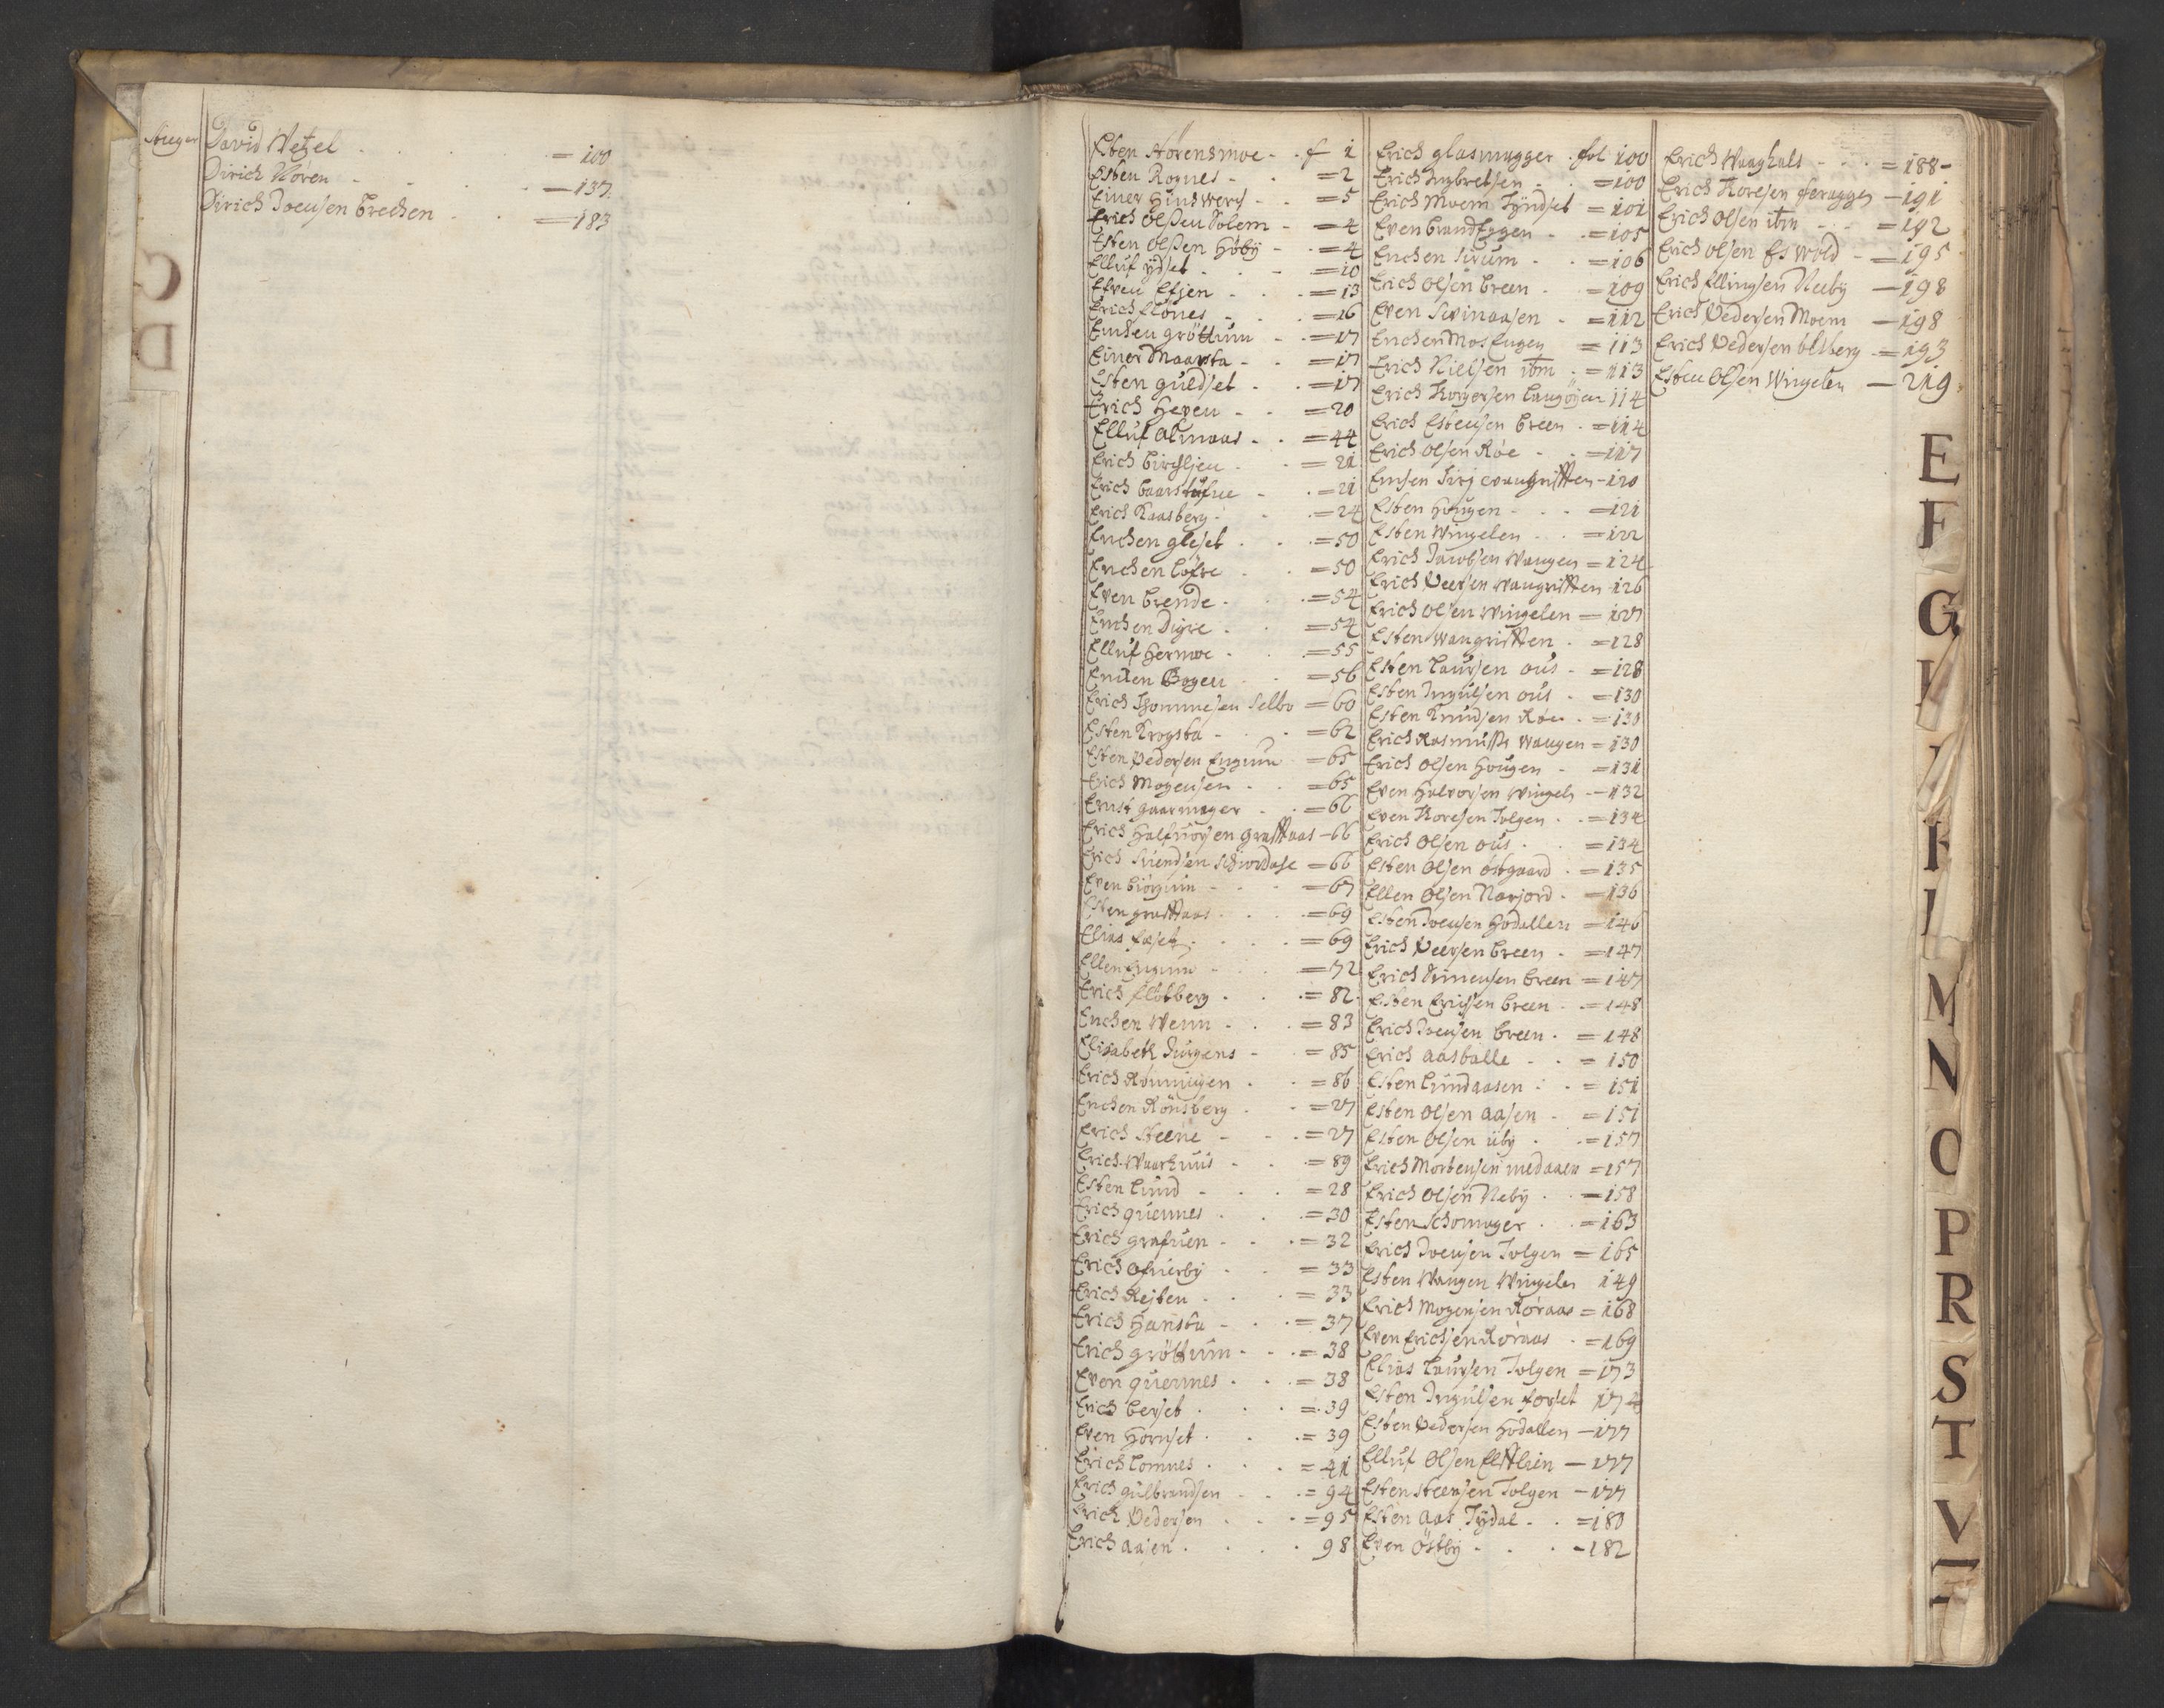 David Wetzel = 100
Dirich Nören - 137
Dirich Joensen Brecken = 183
C
D
Esten Störensmoe f 1
Esten Rognes = 2
Einer Hindwerch = 5
Erich Olßen Solem = 4
Esten Olßen Höby = 4
Elluf ydset = 10
Efven Efjen = 13
Erich flönes = 16
Endsen gröttum = 17
Einer Maarsta = 17
Esten guldset = 17
Erich Heven = 20
Elluf Almaas = 44
Erich Circhlien = 21
Erich Baarstufue = 21
Erich Kaasberg = 24
Enchen gleset = 50
Enchen Löfre = 50
Even Brende = 54
Enchen Digre = 54
Elluf Hermoe = 55
Encken Bogen = 56
Erich Thommesen Selbo = 60
Esten Krogsta = 62
Esten Pedersen Engum = 65
Erich Mogensen = 65
Ernst gaarmager = 66
Erich Halfuorsen graftaas - 66
Erich Suendsen Schiordase = 66
Even Biörgum = 67
Esten graftaas = 69
Elias faset = 69
Ellen Engum = 72
Erich flotberg = 82
Enchen Wenn = 83
Elisabeth Jurgens = 85
Erich Rönningen = 86
Enchen Rönsberg = 27
Erich Steene = 27
Erich Waarhuus = 89
Esten Lund = 28
Erich quennes = 30
Erich grafuen = 32
Erich Ofuerby = 33
Erich Reiten = 33
Erich Hansta = 37
Erich gröttum = 38
Even quennes = 38
Erich Berset = 39
Even Hornset = 39
Erich Lomnes = 41
Erich gulbrandsen = 94
Erich Pedersen = 95
Erich aasen 98
Erich glasmagger fol 100
Erich Ingbretsen = 100
Erich Moem Tyndset = 101
Even Brandeggen = 105
Enchen Sirum = 106
Erich Olsen Breen = 109
Even Svinaasen = 112
Enchen Mosengen = 113
Erich Nielsen ibm = 113
Erich Torgersen Langöyen 114
Erich Estensen Breen = 114
Erich Olsen Röe = 117
Esten Hougen = 121
Esten Wingelen = 122
Erich Jacobsen Wangen = 124
Erich Peersen Wangriften 126
Erich Olsen Wingelen = 127
Esten Wangriften = 128
Esten Laursen ous = 128
Esten Ingulsen ous = 130
Esten Knudsen Röe = 130
Erich Rasmusß Wangen = 130
Erich Olsen Hougen = 131
Even Halvorsen Wingeln - 132
Even Toresen Tolgen = 134
Erich Olsen ous = 134
Esten Olsen östgaard = 135
Ellen Olsen Narjord = 136
Esten Joensen Hodallen = 146
Erich Peersen Breen = 147
Erich Simensen Breen = 147
Esten Erichsen Breen = 148
Erich Joensen Breen = 148
Erich aasballe = 150
Esten Lundaasen = 151
Esten Olsen aasen = 151
Esten Olsen üby = 157
Erich Mortensen medaaen = 157
Erich Olsen Neby = 158
Esten Schomager = 163
Erich Joensen Tolgen = 165
Esten Wangen Wingelen 149
Erich Mogensen Röraas = 168
Even Erichsen Röraas = 169
Elias Laursen Tolgen = 173
Esten Ingulsen forset 174
Esten Pedersen Hodallen - 177
Elluf Olsen Elftlien - 177
Esten Steensen Tolgen - 177
Esten aas Tydal = 180
Even Östby - 182
Erich Waaghals = 188
Erich Toresen feragen - 191
Erich Olsen ibm = 192
Erich Olsen Eswold = 195
Erich Ellingsen Neeby - 198
Erich Pedersen Moem - 198
Erich Pedersen Estberg = 193
Esten Olsen Wingelen - 219
E
F
G
M
N
O
P
R
S
T
V